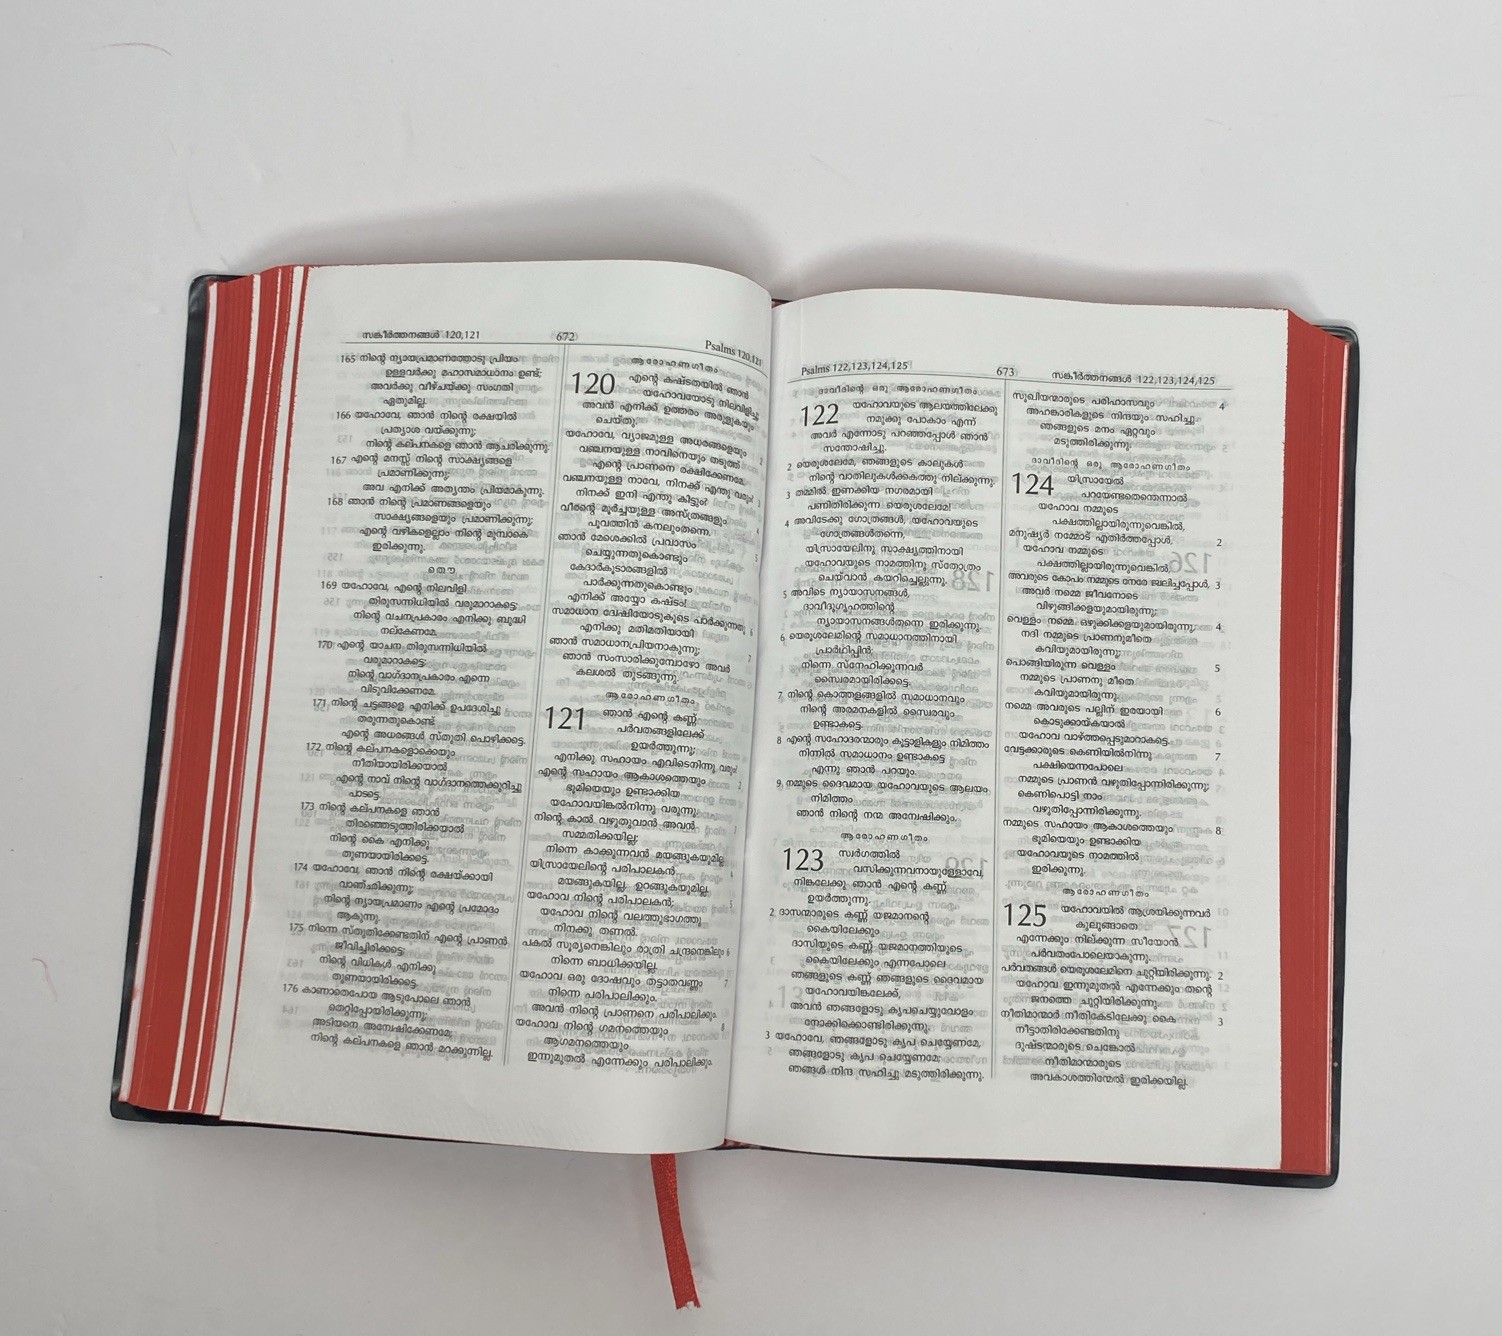 സങ്കീർത്തനങ്ങൾ 120,121
672
Psalms 120,121
165 നിന്റെ ന്യായപ്രമാണത്തോടു പ്രിയം
ഉള്ളവർക്കു മഹാസമാധാനം ഉണ്ട്;
അവർക്കു വീഴ്ചയ്ക്കു സംഗതി
ഏതുമില്ല.
166 യഹോവേ, ഞാൻ നിന്റെ രക്ഷയിൽ
പ്രത്യാശ വയ്ക്കുന്നു;
നിന്റെ കല്പനകളെ ഞാൻ ആചരിക്കുന്നു.
167 എന്റെ മനസ്സ് നിന്റെ സാക്ഷ്യങ്ങളെ
പ്രമാണിക്കുന്നു;
അവ എനിക്ക് അത്യന്തം പ്രിയമാകുന്നു.
168 ഞാൻ നിന്റെ പ്രമാണങ്ങളെയും
സാക്ഷ്യങ്ങളെയും പ്രമാണിക്കുന്നു;
എന്റെ വഴികളെല്ലാം നിന്റെ മുമ്പാകെ
ഇരിക്കുന്നു.
ത്തൌ
169 യഹോവേ, എന്റെ നിലവിളി
തിരുസന്നിധിയിൽ വരുമാറാകട്ടെ;
നിന്റെ വചനപ്രകാരം എനിക്കു ബുദ്ധി
നല്കേണമേ.
170 എന്റെ യാചന തിരുസന്നിധിയിൽ
വരുമാറാകട്ടെ;
നിന്റെ വാഗ്ദാനപ്രകാരം എന്നെ
വിടുവിക്കേണമേ.
171 നിന്റെ ചട്ടങ്ങളെ എനിക്ക് ഉപദേശിച്ചു
തരുന്നതുകൊണ്ട്
എന്റെ അധരങ്ങൾ സ്തുതി പൊഴിക്കട്ടെ.
172 നിന്റെ കല്പനകളൊക്കെയും
നീതിയായിരിക്കയാൽ
എന്റെ നാവ് നിന്റെ വാഗ്ദാനത്തെക്കുറിച്ചു
പാടട്ടെ.
173 നിന്റെ കല്പനകളെ ഞാൻ
തിരഞ്ഞെടുത്തിരിക്കയാൽ
നിന്റെ കൈ എനിക്കു
തുണയായിരിക്കട്ടെ.
174 യഹോവേ, ഞാൻ നിന്റെ രക്ഷയ്ക്കായി
വാഞ്ഛിക്കുന്നു;
നിന്റെ ന്യായപ്രമാണം എന്റെ പ്രമോദം
ആകുന്നു.
175 നിന്നെ സ്തുതിക്കേണ്ടതിന് എന്റെ പ്രാണൻ
ജീവിച്ചിരിക്കട്ടെ;
നിന്റെ വിധികൾ എനിക്കു
തുണയായിരിക്കട്ടെ.
176 കാണാതെപോയ ആടുപോലെ ഞാൻ
തെറ്റിപ്പോയിരിക്കുന്നു;
അടിയനെ അന്വേഷിക്കേണമേ;
നിന്റെ കല്പനകളെ ഞാൻ മറക്കുന്നില്ല.
ആരോഹണഗീതം
120 എന്റെ കഷ്ടതയിൽ ഞാൻ
യഹോവയോടു നിലവിളിച്ചു;
അവൻ എനിക്ക് ഉത്തരം അരുളുകയും
ചെയ്തു.
യഹോവേ, വ്യാജമുള്ള അധരങ്ങളെയും 2
വഞ്ചനയുള്ള നാവിനെയും തടുത്ത്
എന്റെ പ്രാണനെ രക്ഷിക്കേണമേ.
വഞ്ചനയുള്ള നാവേ, നിനക്ക് എന്തു വരും? 3
നിനക്ക് ഇനി എന്തു കിട്ടും?
വീരന്റെ മൂർച്ചയുള്ള അസ്ത്രങ്ങളും 4
പൂവത്തിൻ കനലുംതന്നെ.
ഞാൻ മേശെക്കിൽ പ്രവാസം 5
ചെയ്യുന്നതുകൊണ്ടും
കേദാർകൂടാരങ്ങളിൽ
പാർക്കുന്നതുകൊണ്ടും
എനിക്ക് അയ്യോ കഷ്ടം!
സമാധാന ദ്വേഷിയോടുകൂടെ പാർക്കുന്നതു 6
എനിക്കു മതിമതിയായി
ഞാൻ സമാധാനപ്രിയനാകുന്നു; 7
ഞാൻ സംസാരിക്കുമ്പോഴോ അവർ
കലശൽ തുടങ്ങുന്നു.
ആരോഹണഗീതം
121 ഞാൻ എന്റെ കണ്ണ്
പർവതങ്ങളിലേക്ക്
ഉയർത്തുന്നു;
എനിക്കു സഹായം എവിടെനിന്നു വരും?
എന്റെ സഹായം ആകാശത്തെയും 2
ഭൂമിയെയും ഉണ്ടാക്കിയ
യഹോവയിങ്കൽനിന്നു വരുന്നു.
നിന്റെ കാൽ വഴുതുവാൻ അവൻ 3
സമ്മതിക്കയില്ല;
നിന്നെ കാക്കുന്നവൻ മയങ്ങുകയുമില്ല.
യിസ്രായേലിന്റെ പരിപാലകൻ 4
മയങ്ങുകയില്ല, ഉറങ്ങുകയുമില്ല.
യഹോവ നിന്റെ പരിപാലകൻ; 5
യഹോവ നിന്റെ വലത്തുഭാഗത്തു
നിനക്കു തണൽ.
പകൽ സൂര്യനെങ്കിലും രാത്രി ചന്ദ്രനെങ്കിലും 6
നിന്നെ ബാധിക്കയില്ല.
യഹോവ ഒരു ദോഷവും തട്ടാതവണ്ണം 7
നിന്നെ പരിപാലിക്കും.
അവൻ നിന്റെ പ്രാണനെ പരിപാലിക്കും.
യഹോവ നിന്റെ ഗമനത്തെയും 8
ആഗമനത്തെയും
ഇന്നുമുതൽ എന്നേക്കും പരിപാലിക്കും.
Psalms 122,123,124,125
673
സങ്കീർത്തനങ്ങൾ 122,123,124,125
ദാവീദിന്റെ ഒരു ആരോഹണഗീതം.
122 യഹോവയുടെ ആലയത്തിലേക്കു
നമുക്കു പോകാം എന്ന്
അവർ എന്നോടു പറഞ്ഞപ്പോൾ ഞാൻ
സന്തോഷിച്ചു.
2 യെരൂശലേമേ, ഞങ്ങളുടെ കാലുകൾ
നിന്റെ വാതിലുകൾക്കകത്തു നില്ക്കുന്നു.
3 തമ്മിൽ ഇണക്കിയ നഗരമായി
പണിതിരിക്കുന്ന യെരൂശലേമേ!
4 അവിടേക്കു ഗോത്രങ്ങൾ, യഹോവയുടെ
ഗോത്രങ്ങൾതന്നെ,
യിസ്രായേലിനു സാക്ഷ്യത്തിനായി
യഹോവയുടെ നാമത്തിനു സ്തോത്രം
ചെയ്‌വാൻ കയറിച്ചെല്ലുന്നു.
5 അവിടെ ന്യായാസനങ്ങൾ,
ദാവീദുഗൃഹത്തിന്റെ
ന്യായാസനങ്ങൾതന്നെ ഇരിക്കുന്നു.
6 യെരൂശലേമിന്റെ സമാധാനത്തിനായി
പ്രാർഥിപ്പിൻ;
നിന്നെ സ്നേഹിക്കുന്നവർ
സ്വൈരമായിരിക്കട്ടെ.
7 നിന്റെ കൊത്തളങ്ങളിൽ സമാധാനവും
നിന്റെ അരമനകളിൽ സ്വൈരവും
ഉണ്ടാകട്ടെ.
8 എന്റെ സഹോദരന്മാരും കൂട്ടാളികളും നിമിത്തം
നിന്നിൽ സമാധാനം ഉണ്ടാകട്ടെ
എന്നു ഞാൻ പറയും.
9 നമ്മുടെ ദൈവമായ യഹോവയുടെ ആലയം
നിമിത്തം
ഞാൻ നിന്റെ നന്മ അന്വേഷിക്കും.
ആരോഹണഗീതം
123 സ്വർഗത്തിൽ
വസിക്കുന്നവനായുള്ളോവേ,
നിങ്കലേക്കു ഞാൻ എന്റെ കണ്ണ്
ഉയർത്തുന്നു.
2 ദാസന്മാരുടെ കണ്ണ് യജമാനന്റെ
കൈയിലേക്കും
ദാസിയുടെ കണ്ണ് യജമാനത്തിയുടെ
കൈയിലേക്കും എന്നപോലെ
ഞങ്ങളുടെ കണ്ണ് ഞങ്ങളുടെ ദൈവമായ
യഹോവയിങ്കലേക്ക്,
അവൻ ഞങ്ങളോടു കൃപചെയ്യുവോളം
നോക്കിക്കൊണ്ടിരിക്കുന്നു.
3 യഹോവേ, ഞങ്ങളോടു കൃപ ചെയ്യേണമേ,
ഞങ്ങളോടു കൃപ ചെയ്യേണമേ;
ഞങ്ങൾ നിന്ദ സഹിച്ചു മടുത്തിരിക്കുന്നു.
സുഖിയന്മാരുടെ പരിഹാസവും 4
അഹങ്കാരികളുടെ നിന്ദയും സഹിച്ചു
ഞങ്ങളുടെ മനം ഏറ്റവും
മടുത്തിരിക്കുന്നു.
ദാവീദിന്റെ ഒരു ആരോഹണഗീതം
124 യിസ്രായേൽ
പറയേണ്ടതെന്തെന്നാൽ
യഹോവ നമ്മുടെ
പക്ഷത്തില്ലായിരുന്നുവെങ്കിൽ,
മനുഷ്യർ നമ്മോട് എതിർത്തപ്പോൾ, 2
യഹോവ നമ്മുടെ
പക്ഷത്തില്ലായിരുന്നുവെങ്കിൽ,
അവരുടെ കോപം നമ്മുടെ നേരേ ജ്വലിച്ചപ്പോൾ, 3
അവർ നമ്മെ ജീവനോടെ
വിഴുങ്ങിക്കളയുമായിരുന്നു;
വെള്ളം നമ്മെ ഒഴുക്കിക്കളയുമായിരുന്നു, 4
നദി നമ്മുടെ പ്രാണനുമീതെ
കവിയുമായിരുന്നു;
പൊങ്ങിയിരുന്ന വെള്ളം 5
നമ്മുടെ പ്രാണനു മീതെ
കവിയുമായിരുന്നു.
നമ്മെ അവരുടെ പല്ലിന് ഇരയായി 6
കൊടുക്കായ്കയാൽ
യഹോവ വാഴ്ത്തപ്പെടുമാറാകട്ടെ.
വേട്ടക്കാരുടെ കെണിയിൽനിന്നു 7
പക്ഷിയെന്നപോലെ
നമ്മുടെ പ്രാണൻ വഴുതിപ്പോന്നിരിക്കുന്നു;
കെണിപൊട്ടി നാം
വഴുതിപ്പോന്നിരിക്കുന്നു.
നമ്മുടെ സഹായം ആകാശത്തെയും 8
ഭൂമിയെയും ഉണ്ടാക്കിയ
യഹോവയുടെ നാമത്തിൽ
ഇരിക്കുന്നു.
ആരോഹണഗീതം
125 യഹോവയിൽ ആശ്രയിക്കുന്നവർ
കുലുങ്ങാതെ
എന്നേക്കും നില്ക്കുന്ന സീയോൻ
പർവതംപോലെയാകുന്നു.
പർവതങ്ങൾ യെരൂശലേമിനെ ചുറ്റിയിരിക്കുന്നു. 2
യഹോവ ഇന്നുമുതൽ എന്നേക്കും തന്റെ
ജനത്തെ ചുറ്റിയിരിക്കുന്നു.
നീതിമാന്മാർ നീതികേടിലേക്കു കൈ 3
നീട്ടാതിരിക്കേണ്ടതിനു
ദുഷ്ടന്മാരുടെ ചെങ്കോൽ
നീതിമാന്മാരുടെ
അവകാശത്തിന്മേൽ ഇരിക്കയില്ല.